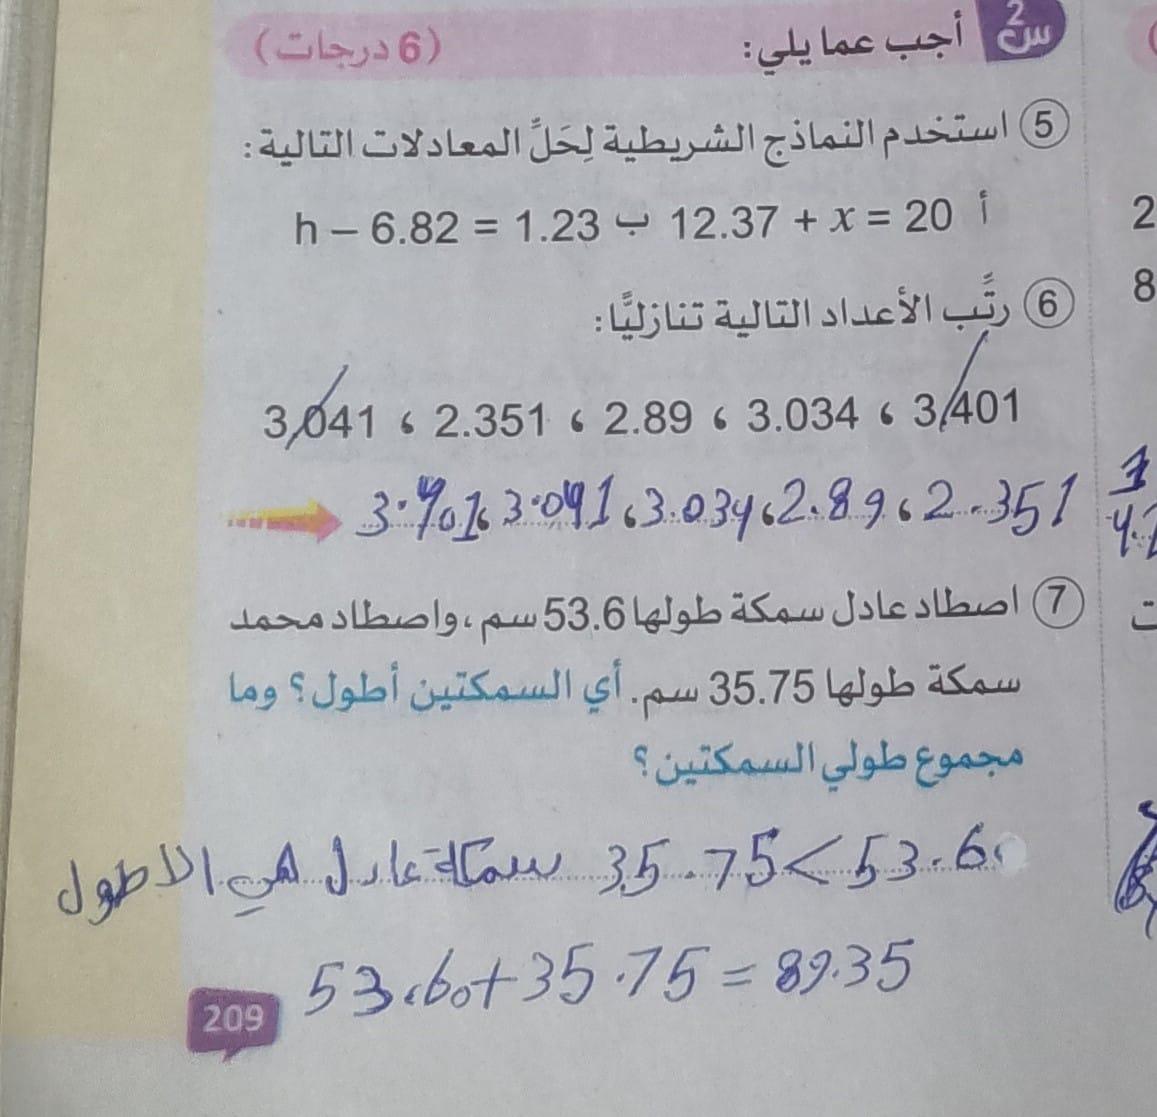 س2 أجب عما يلي: (6 درجات)
5 استخدم النماذج الشريطية لِحَلِّ المعادلات التالية:
أ 12.37 + x = 20 ب h – 6.82 = 1.23
6 رتِّب الأعداد التالية تنازليًّا:
3.401 ، 3.034 ، 2.89 ، 2.351 ، 3.041
3.401، 3.041، 3.034، 2.89، 2.351
7 اصطاد عادل سمكة طولها 53.6 سم، واصطاد محمد
سمكة طولها 35.75 سم. أي السمكتين أطول؟ وما
مجموع طولي السمكتين؟
35.75 < 53.60 سمكة عادل هي الاطول
53.60 + 35.75 = 89.35
209